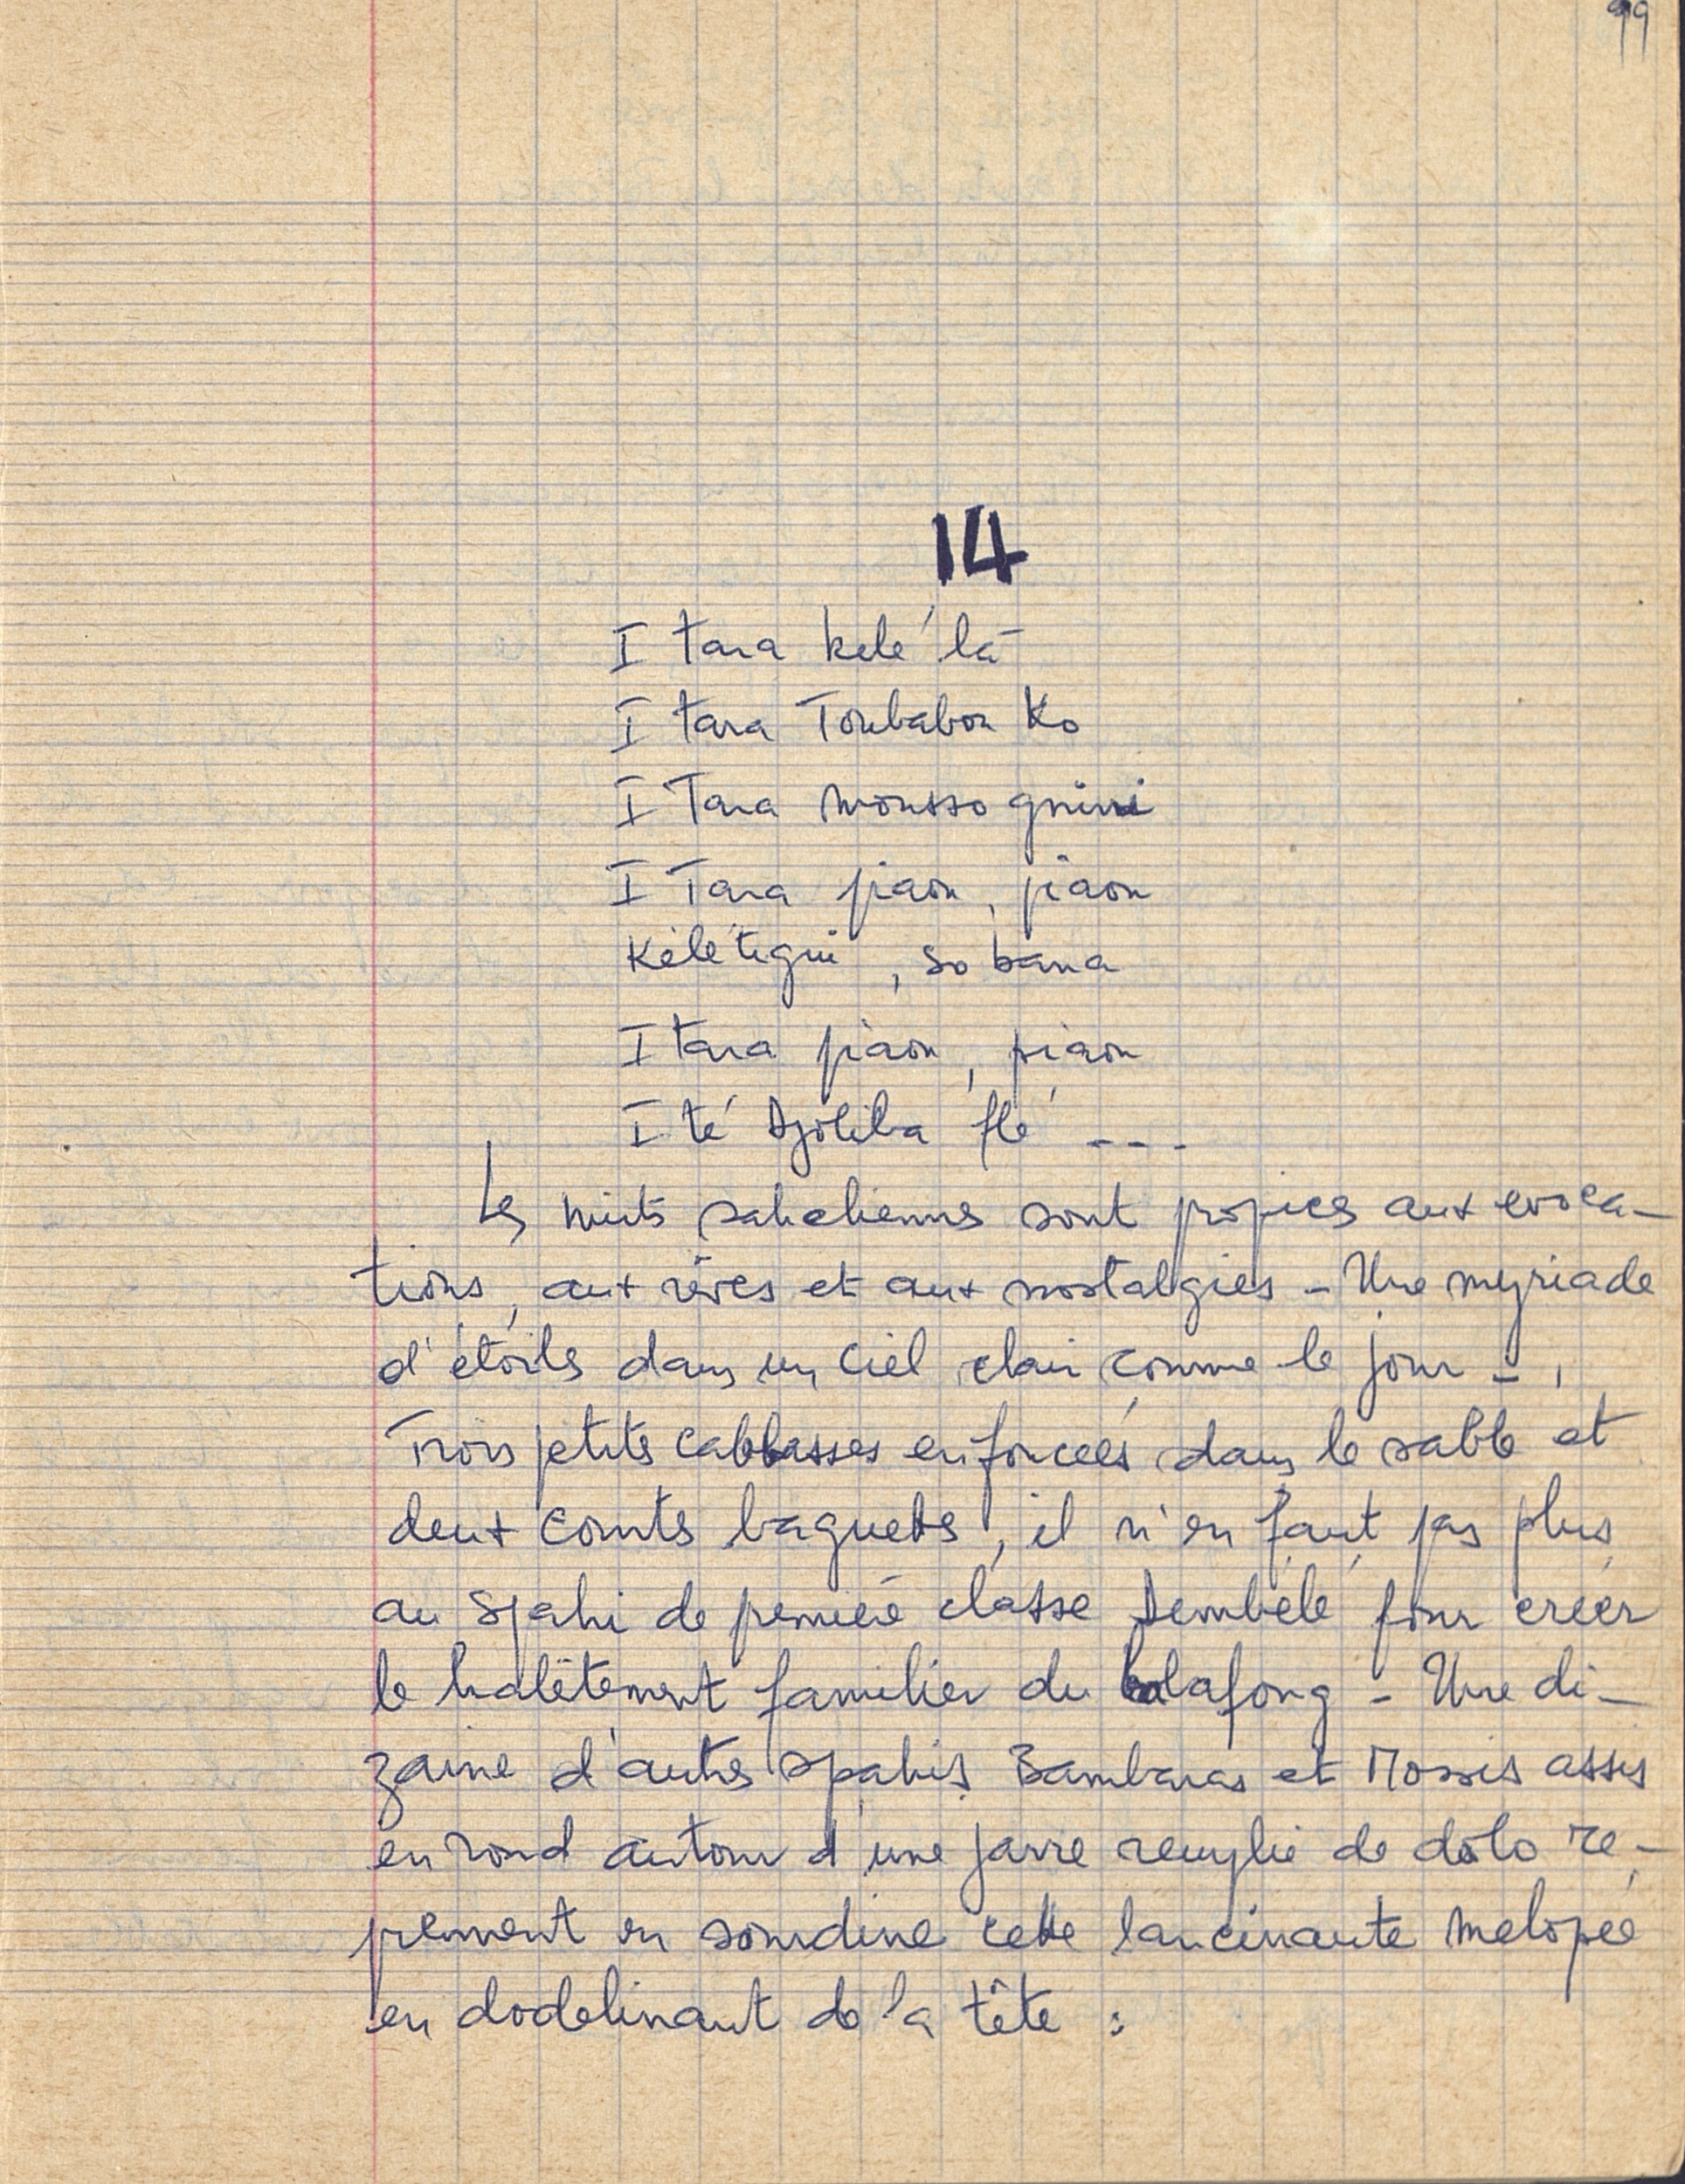 99
14
I tara kélé la
I tara Toubabou Ko
I Tara mousso gnini
I Tara piaou, piaou
Kélétigui, so bana
I tara piaou, piaou
I té Djoliba flé ---
Les nuits saheliennes sont propices aux evoca-
tions, aux rêves et aux nostalgies - Une myriade
d'étoiles dans un ciel clair comme le jour -
Trois petites calebasses enfoncées dans le sable et
deux courtes baguettes, il n'en faut pas plus
au spahi de première classe Dembélé pour créer
le halètement familier du balafong - Une di-
zaine d'autres spahis Bambaras et Mossis assis
en rond autour d'une jarre remplie de dolo re-
prennent en sourdine cette lancinante mélopée
en dodelinant de la tête :